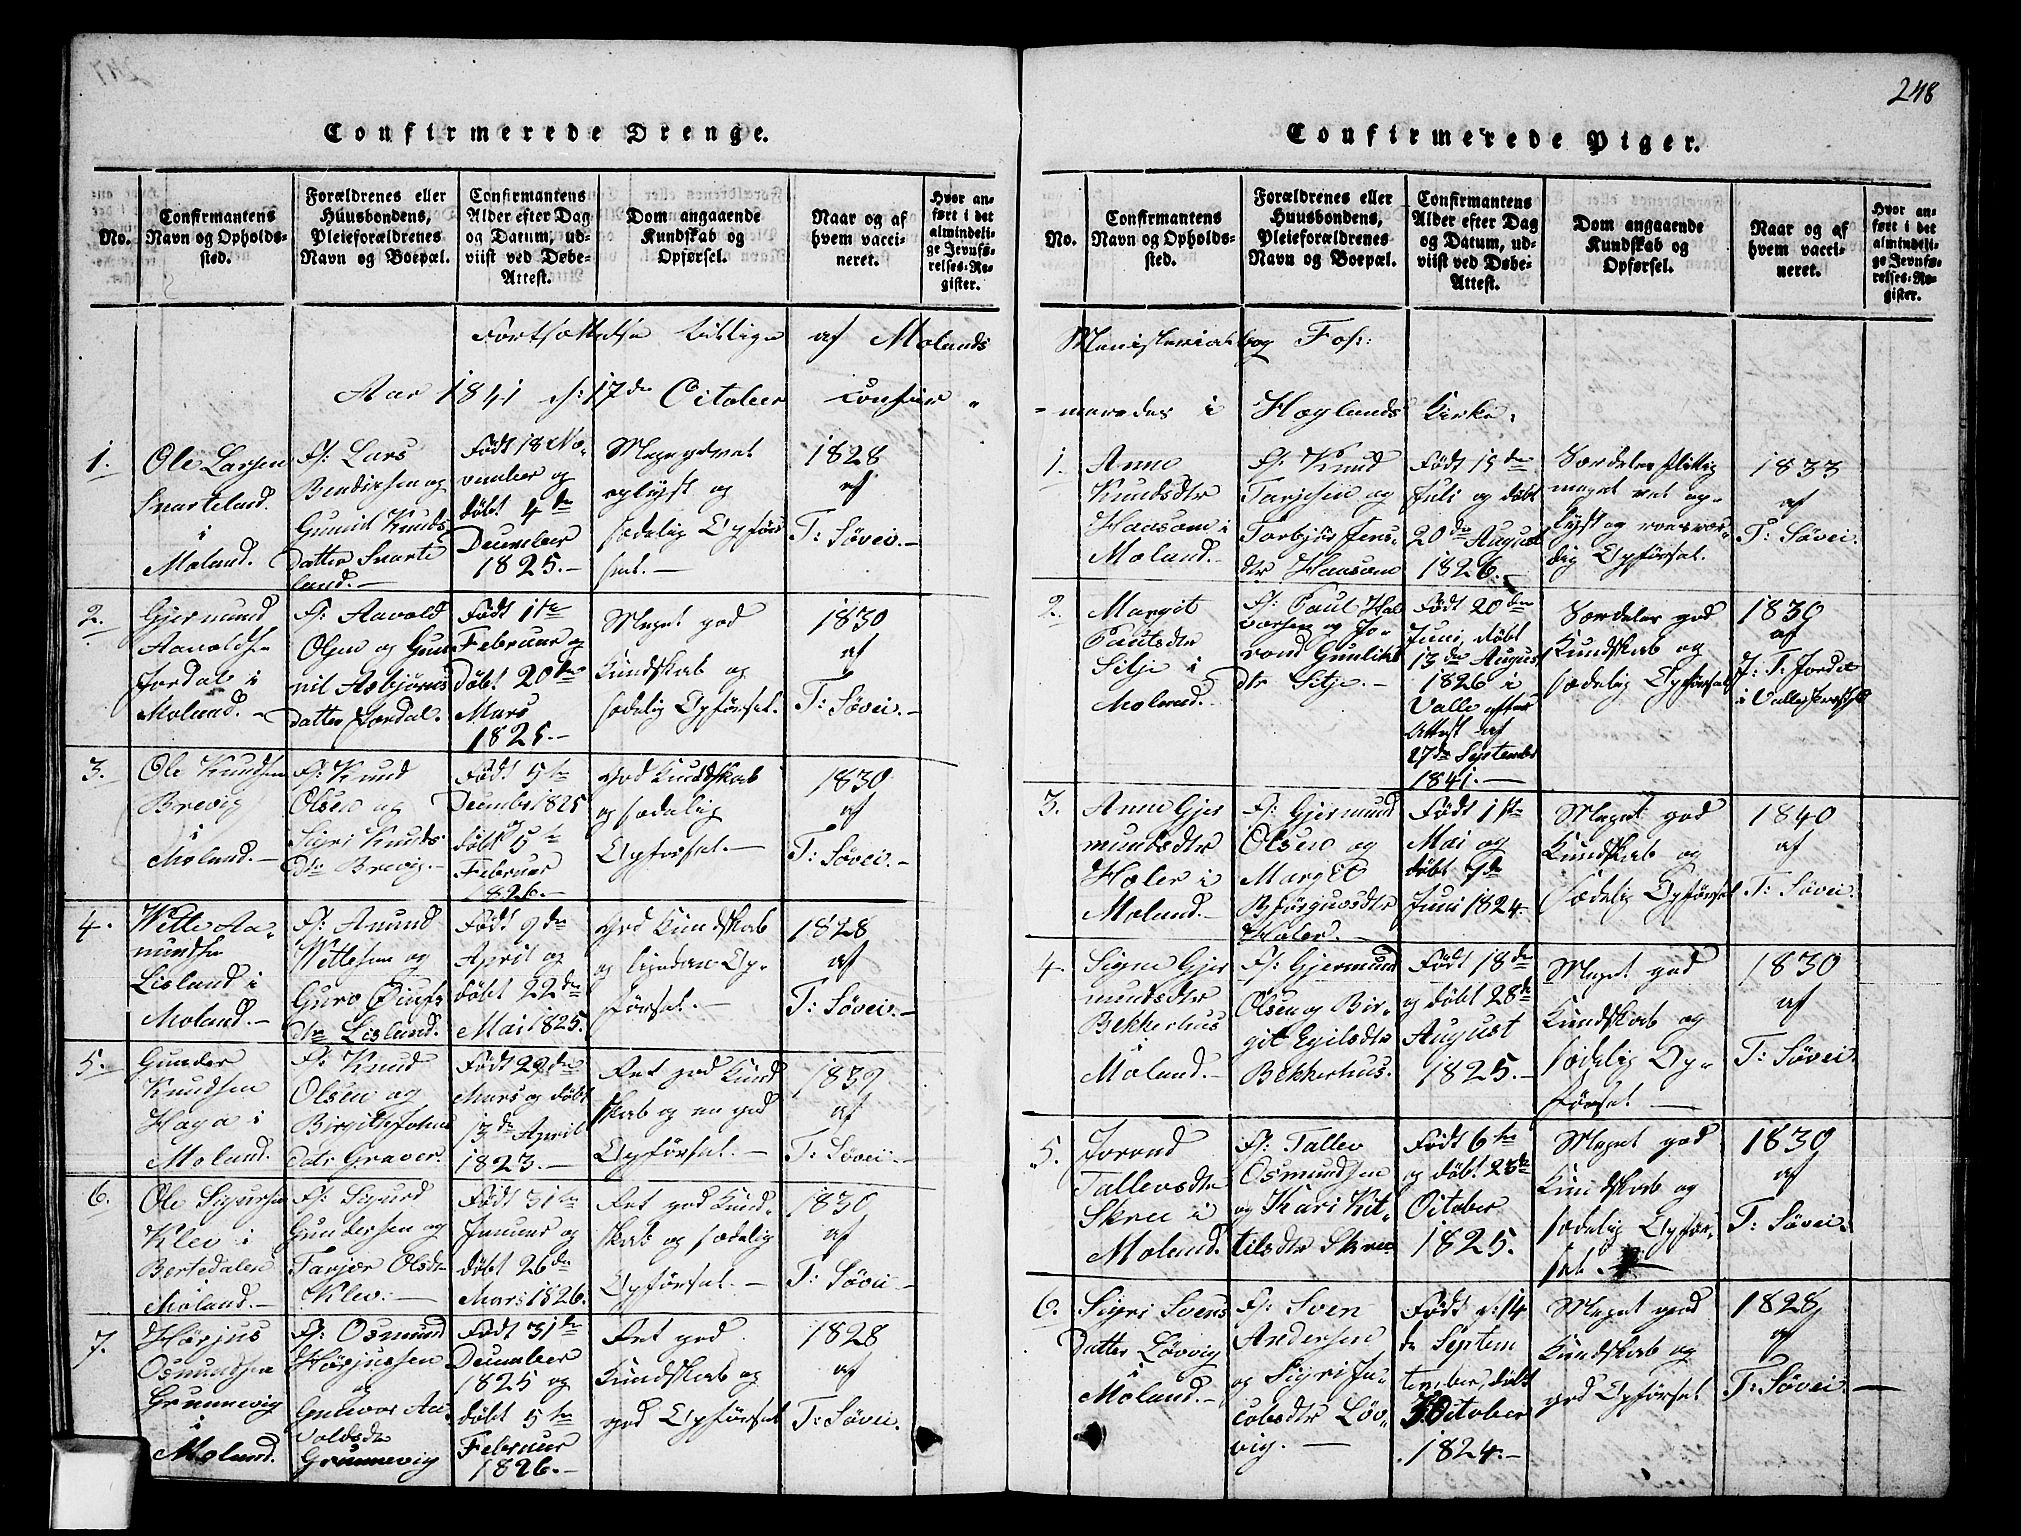 248
Confirmerede Drenge.
No.
Confirmantens
Navn og Opholds-
sted.
Forældrenes eller
Huusbondens,
Pleieforældrenes
Navn og Boepæl.
Confirmantens
Alder efter Dag
og Datum, ud-
viist ved Døbe-
Attest.
Dom angaaende
Kundskab og
Opførsel.
Naar og af
hvem vacci-
neret.
Hvor an-
ført i det
almindeli-
ge Jevnfø-
relses-Re-
gister.
Fortsættelse tillige af Molands
Aar 1841 d: 17de October confir-
1.
Ole Larsen
Snarteland
i
Moland.
F: Lars
Bendixsen og
Gunild Knuds
datter Snarte
land.—
Født 18 No-
vember og
døbt 4de
December
1825.—
Meget vel
oplyst og
sædelig Opfør
sel.—
1828
af
T: Søvei.—
2.
Gjermund
Aavoldsn
Jordal i
Moland.—
F: Aavold
Olsen og Gun
nil Asbjørns
datter Jordal.
Født 1ste
Februar og
Døbt 20de
Mars
1825.—
Meget god
Kundskab og
sædelig Opførsel.
1830
af
T: Søvei.—
3.
Ole Knudsen
Brevig
i
Moland.—
F: Knud
Olsen og
Sigri Knuds
Dtr Brevig.—
Født 5te
Decembr 1825
og
døbt 5te
Februar
1826.—
God Kundskab
og sædelig
Opførsel.—
1830
af
T: Søvei.—
4.
Wetle Aa-
mundsen
Lisland i
Moland.—
F: Amund
Wetlesen og
Guro
dtr Lisland.
Født 9de
April og
døbt 22de
Mai 1825.
God Kundskab
og Op-
førsel.—
1828
af
T: Søvei.—
5.
Gunder
Knudsen
Haga i
Moland.
F: Knud
Olsen og
Birgith Johns
Datr Graver.
Født 29de
Mars og døbt
13de April
1823.—
Ret god Kund
skab og en god
Opførsel.—
1839
af
T: Søvei.—
6.
Ole Sigursen
Klev i
Bertedalen
Moland.—
F: Sigurd
Gundersen og
Tarjer Olsdr
Klev.—
Født 31te
Januar og
døbt 26de
Mars 1826.
Ret god Kund-
skab og sædelig
Opførsel.—
1830
af
T: Søvei—
7.
Hørjus
Osmundsen
Grunnevig
i
Moland.
F: Osmund
Hørjussen
og
Gunvor Aa-
voldsdr
Grunnevig
Født 31te
December
1825 og
døbt 5te
Februar
1826.—
Ret god
Kundskab og
god Opførsel
1828
af
T: Søvei.
Confirmerede Piger.
No.
Confirmantens
Navn og Opholds-
sted.
Forældrenes eller
Huusbondens,
Pleieforældrenes
Navn og Boepæl.
Confirmantens
Alder efter Dag
og Datum, ud-
viist ved Døbe-
Attest.
Dom angaaende
Kundskab og
Opførsel.
Naar og af
hvem vacci-
neret.
Hvor an-
ført i det
almindeli-
ge Jevnfø-
relses-Re-
gister.
Ministerialbog Fol:
-meredes i Høylands Kirke:
1.
Anne
Knudsdtr
Haasom i
Moland.—
F: Knud
Tarjesen og
Torbjør Jens-
dtr Haasom
Født 15de
Juli og døbt
20de August
1826.—
Særdeles flittig
meget vel op-
lyst og roesvær-
dig Opførsel.
1833
af
T: Søvei.
2.
Margit
Paulsdtr
Sitje i
Moland.—
F: Paul Hal
vorsen og Jo-
rond Gunliks
dtr Sitje.—
Født 20de
Juni, døbt
13de August
1826 i
Valle efter
Attest af
27de September
1841.—
Særdeles god
Kundskab og
sædelig Opførsel
1830
af
J: T: Jordet
i Valle
3.
Anne Gjer
mundsdtr
Holer i
Moland.—
F: Gjermund
Olsen og
Margit
Bjørguvsdtr
Holer.—
Født 1ste
Mai og
døbt 7de
Juni 1824.
Meget god
Kundskab og
Sædelig Opførsel
1840
af
T: Søvei.
4.
Signe Gjer
mundsdtr
Bekkerhus
i
Moland.—
F: Gjermund
Olsen og Bir-
git Egilsdtr
Bekkerhus.
Født 18de
og døbt 28de
August
1825.—
Meget god
Kundskab og
sædelig Op-
førsel—
1830
af
T: Søvei.
5.
Jorond
Tallevsdtr
Skree i
Moland.
F: Tallev
Osmundsen
og Kari Kit-
tilsdtr Skree
Født 6te
og døbt 23de
October
1825.
Meget god
Kundskab og
sædelig Opfør-
sel.
1830
af
T: Søvei.
6.
Sigri Svens
Datter Løvvig
i
Moland.—
F: Sven
Andersen
og Sigri Ja-
cobsdtr Løv-
vig.—
Født d: 14
de Septem
ber, døbt
3 October
1824.—
Meget god
Kundskab og
god Opførsel
1828
af
T: Søvei.—